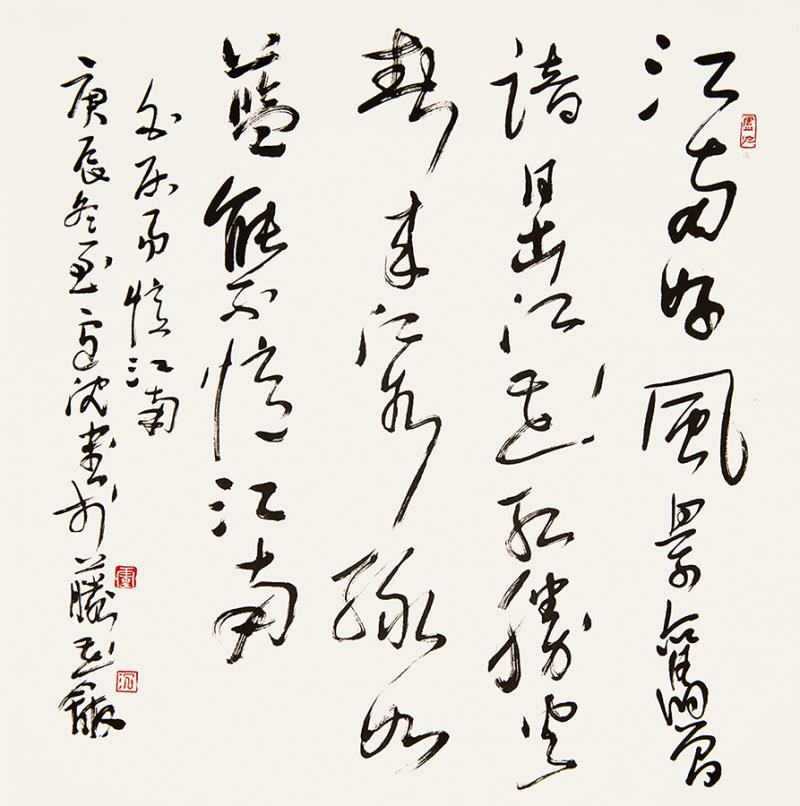 江南好風景舊曾
諳日出江花紅勝火
春來江水綠如
藍能不憶江南
白居易憶江南
庚辰冬至沈書於藤花館